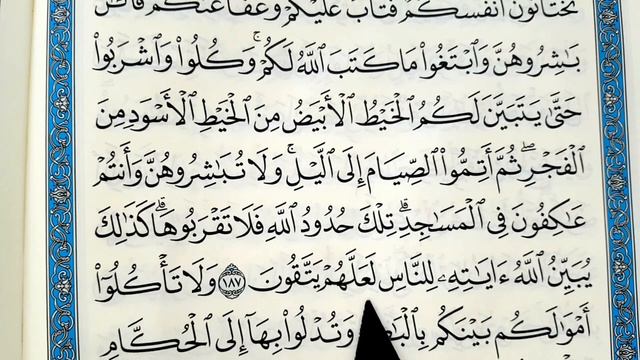 تَخْتَانُونَ أَنفُسَكُمْ فَتَابَ عَلَيْكُمْ وَعَفَا عَنكُمْ فَٱلْـَٰٔنَ
بَٰشِرُوهُنَّ وَٱبْتَغُوا۟ مَا كَتَبَ ٱللَّهُ لَكُمْ ۚ وَكُلُوا۟ وَٱشْرَبُوا۟
حَتَّىٰ يَتَبَيَّنَ لَكُمُ ٱلْخَيْطُ ٱلْأَبْيَضُ مِنَ ٱلْخَيْطِ ٱلْأَسْوَدِ مِنَ
ٱلْفَجْرِ ۖ ثُمَّ أَتِمُّوا۟ ٱلصِّيَامَ إِلَى ٱلَّيْلِ ۚ وَلَا تُبَٰشِرُوهُنَّ وَأَنتُمْ
عَٰكِفُونَ فِى ٱلْمَسَٰجِدِ ۗ تِلْكَ حُدُودُ ٱللَّهِ فَلَا تَقْرَبُوهَا ۗ كَذَٰلِكَ
يُبَيِّنُ ٱللَّهُ ءَايَٰتِهِۦ لِلنَّاسِ لَعَلَّهُمْ يَتَّقُونَ ١٨٧ وَلَا تَأْكُلُوٓا۟
أَمْوَٰلَكُم بَيْنَكُم وَتُدْلُوا۟ بِهَآ إِلَى ٱلْحُكَّامِ